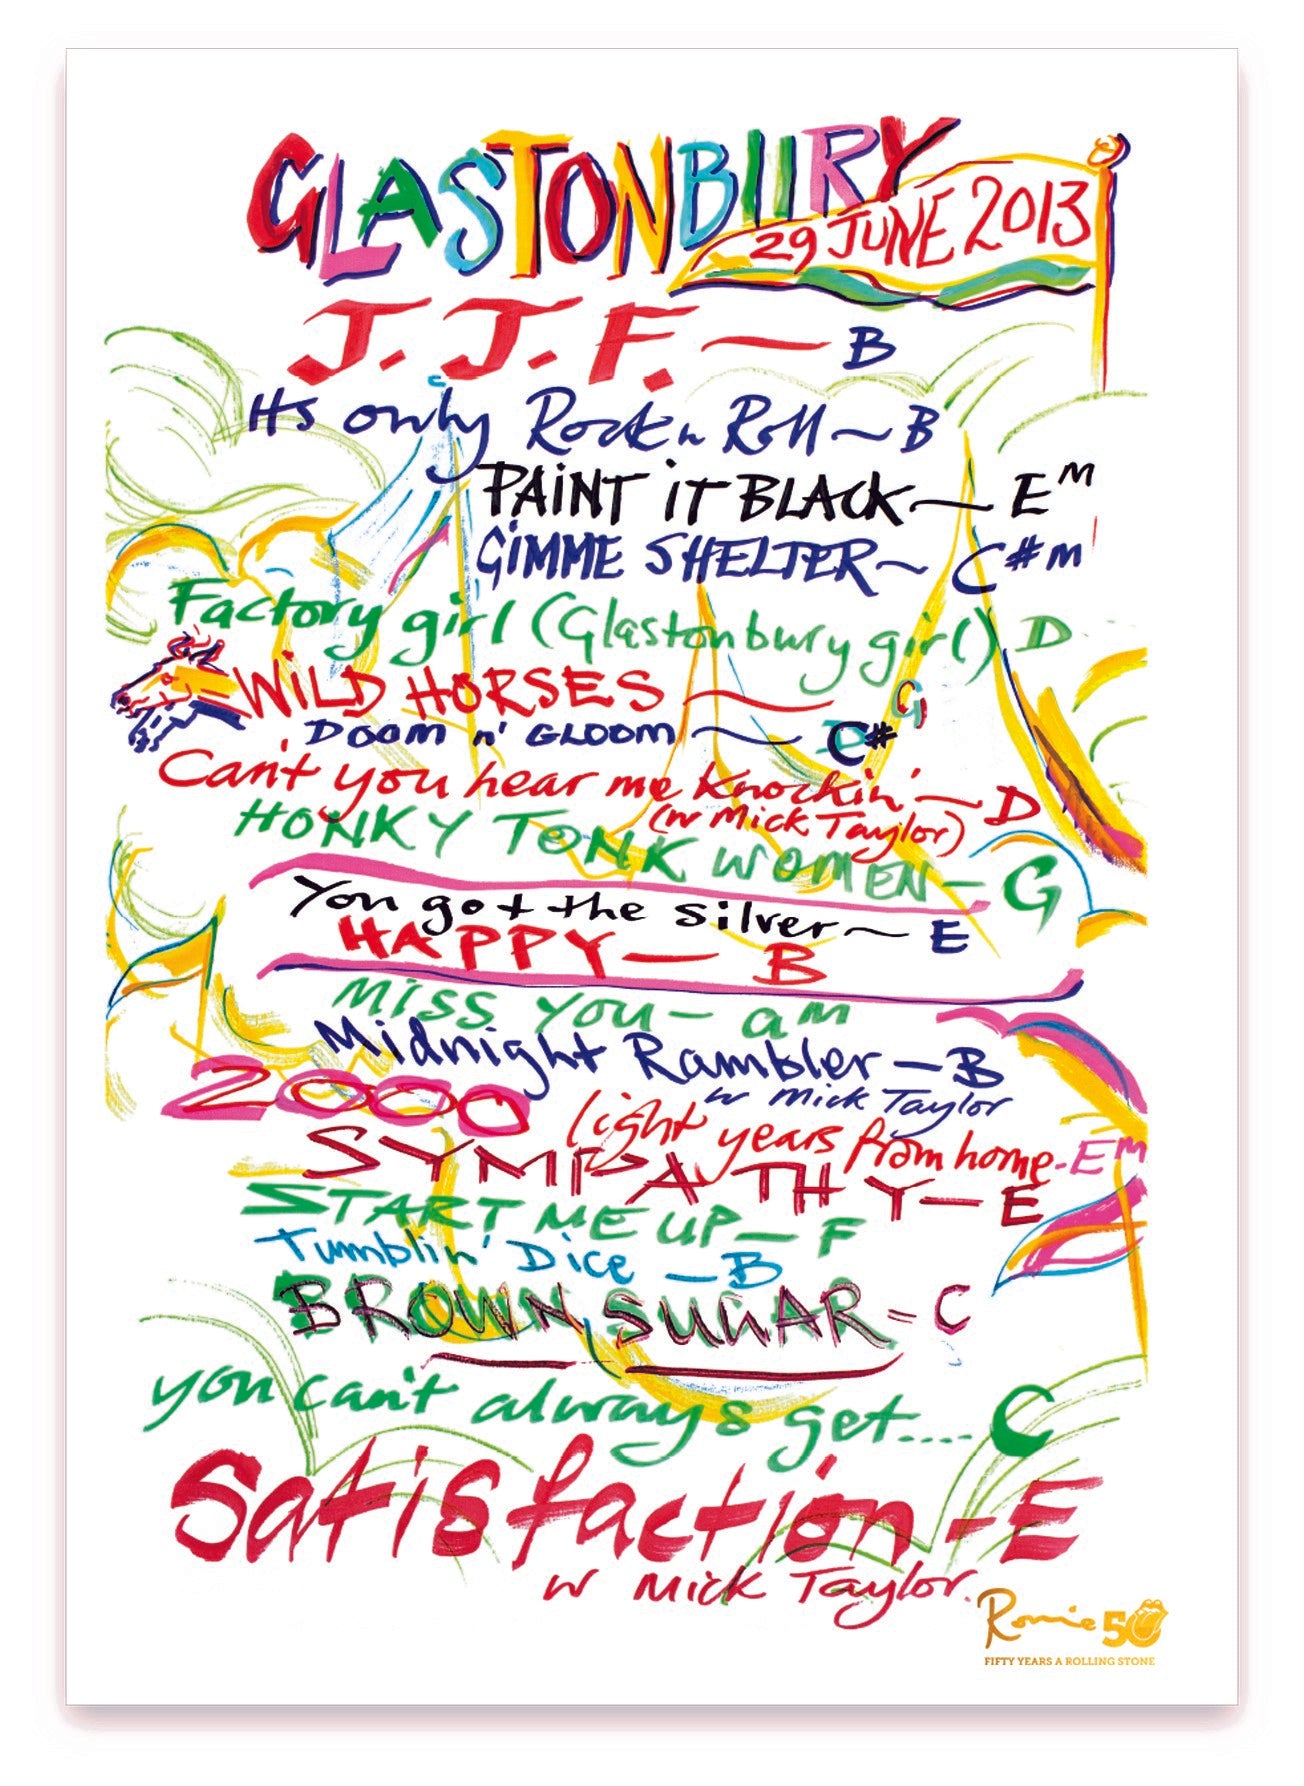 GLASTONBURY
29 JUNE 2013
J. J. F. — B
Its only Rock n Roll ~ B
PAINT IT BLACK — Em
GIMME SHELTER ~ C#m
Factory girl (Glastonbury girl) D
WILD HORSES — G
DOOM n' GLOOM ~ C#
Can't you hear me Knockin' ~ D
(w Mick Taylor)
HONKY TONK WOMEN — G
You got the silver ~ E
HAPPY — B
MISS YOU — am
Midnight Rambler — B
w Mick Taylor
2000 light years from home - Em
SYMPATHY — E
START ME UP — F
Tumblin' Dice — B
BROWN SUGAR = C
you can't always get.... C
Satisfaction - E
w Mick Taylor.
Ronnie 50
FIFTY YEARS A ROLLING STONE